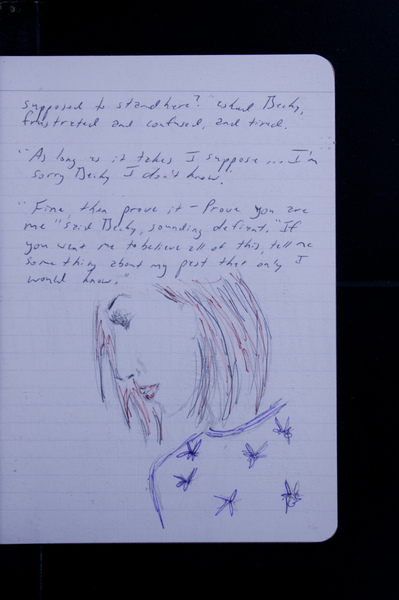 supposed to stand here?" asked Becky,
frustrated and confused, and tired.
"As long as it takes I suppose... I'm
sorry Becky I don't know.
"Fine, then prove it - Prove you are
me" said Becky, sounding defiant. "If
you want me to believe all of this, tell me
something about my past that only I
would know."